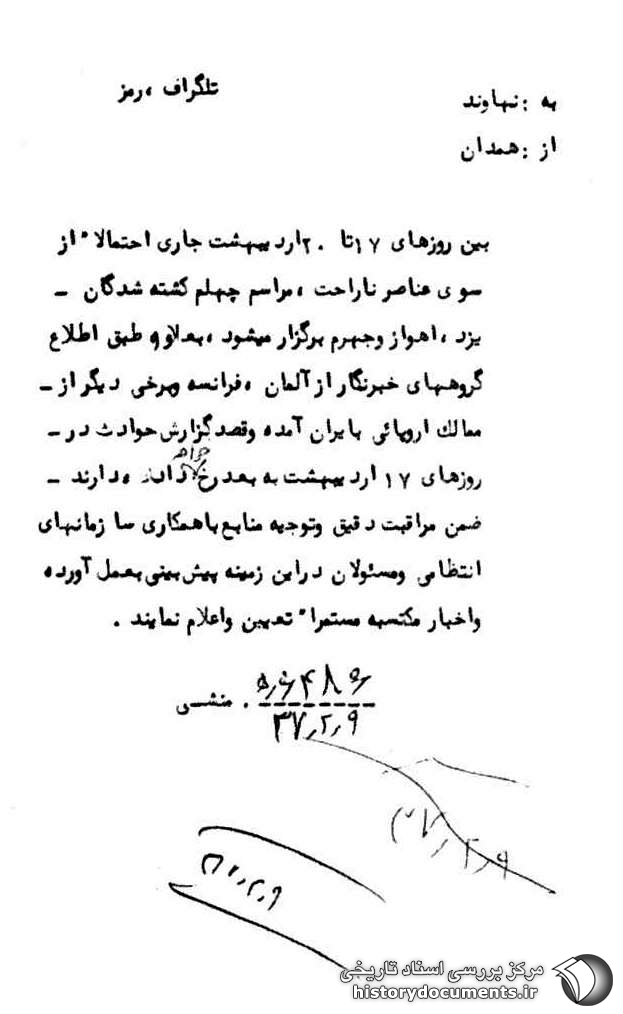 تلگراف، رمز
به : نهاوند
از : همدان
بین روزهای ۱۷ تا ۲۰ اردیبهشت جاری احتمالا" از
سوی عناصر ناراحت، مراسم چهلم کشته شدگان -
یزد، اهواز وجهرم برگزار میشود، بعلاوه طبق اطلاع
گروههای خبرنگار از آلمان، فرانسه وبرخی دیگر از -
ممالك اروپائی بایران آمده وقصد گزارش حوادث در -
روزهای ۱۷ اردیبهشت به بعد رخ خواهد داد، دارند -
ضمن مراقبت دقیق وتوجیه منابع باهمکاری سازمانهای
انتظامی ومسئولان دراین زمینه پیش بینی بعمل آورده
واخبار مکتسبه مستمرا" تعیین واعلام نمایند.
منشی
۳۷٫۲٫۹
۳۷٫۲٫۹
مرکز بررسی اسناد تاریخی
historydocuments.ir